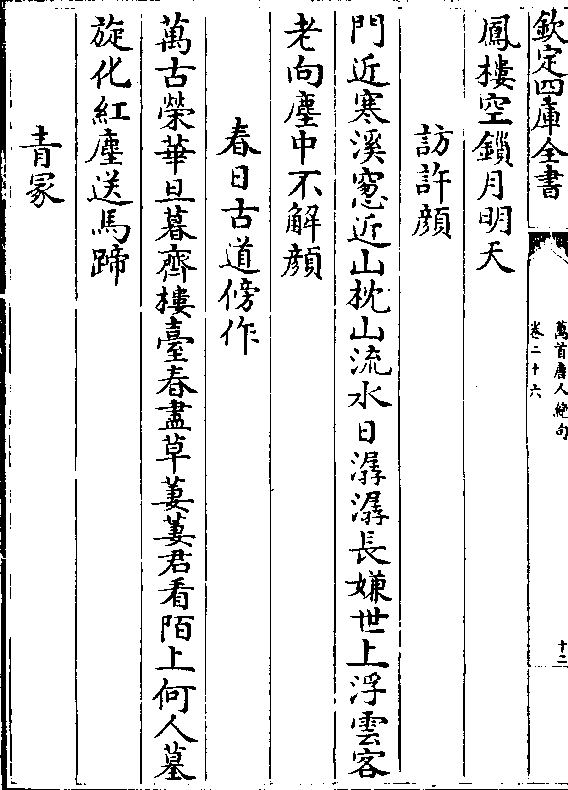 欽定四庫全書
萬首唐人絶句
卷二十六
十二
鳳樓空鎖月明天
訪許顔
門近寒溪窓近山枕山流水日潺潺長嫌世上浮雲客
老向塵中不解顔
春日古道傍作
萬古榮華旦暮齊樓臺春盡草萋萋君看陌上何人墓
旋化紅塵送馬蹄
青冢